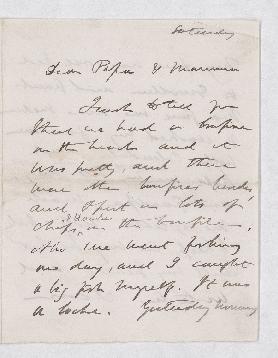 Saturday
Dear Papa & Mamma
I wish to tell you
that we had a bonfire
on the beach and it
was pretty, and there
were other bonfires besides,
and I put on lots of
chips, on the bonfire,
we went fishing
one day, and I caught
a big fish myself. It was
a Yesterday